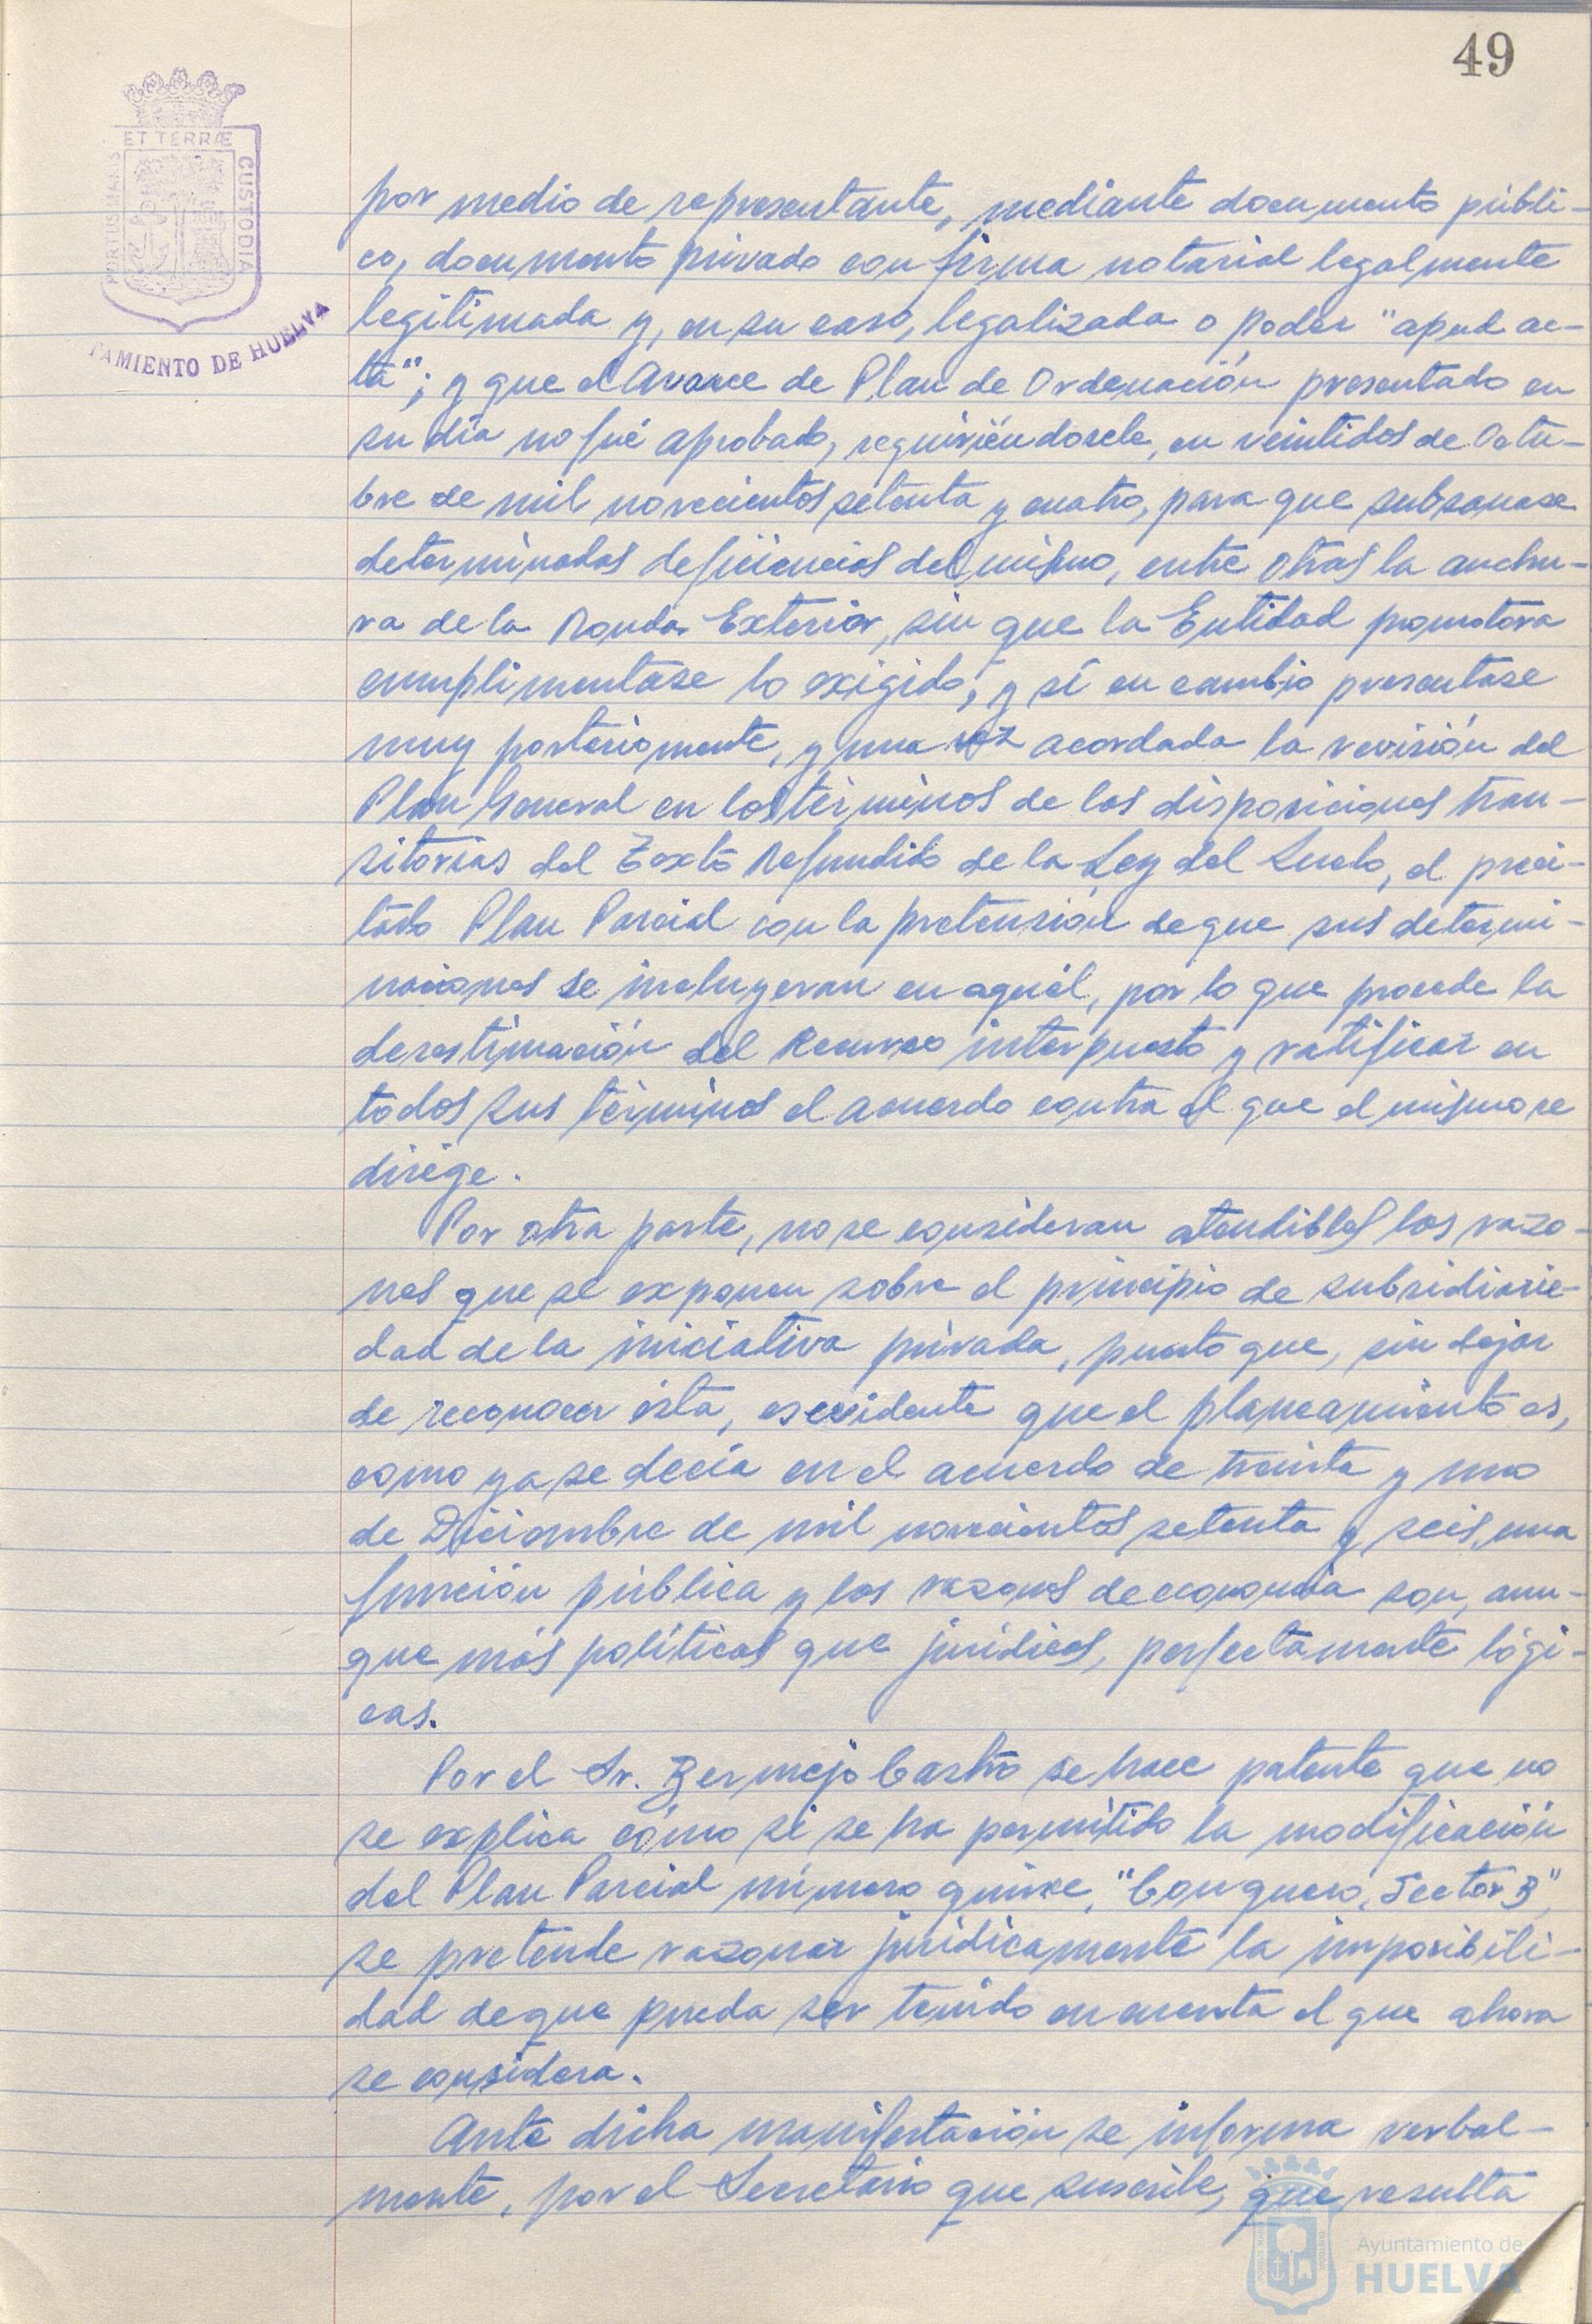 49
ET TERRÆ
PORTUS MARIS
CUSTODIA
TAMIENTO DE HUELVA
por medio de representante, mediante documento públi-
co, documento privado con firma notarial legalmente
legitimada y, en su caso, legalizada o poder "apud ac-
ta"; y que el Avance de Plan de Ordenación presentado en
su día no fué aprobado, requiriéndosele, en veintidos de Octu-
bre de mil novecientos setenta y cuatro, para que subsanase
determinadas deficiencias del mismo, entre otras la anchu-
ra de la Ronda Exterior, sin que la Entidad promotora
cumplimentase lo exigido; y sí en cambio presentase
muy posteriomente, y una vez acordada la revisión del
Plan General en los términos de las disposiciones tran-
sitorias del Texto Refundido de la Ley del Suelo, el preci-
tado Plan Parcial con la pretensión de que sus determi-
naciones se incluyeran en aquél, por lo que procede la
desestimación del Recurso interpuesto y ratificar en
todos sus términos el acuerdo contra el que el mismo se
dirige.
Por otra parte, no se consideran atendibles las razo-
nes que se exponen sobre el principio de subsidiarie-
dad de la iniciativa privada, puesto que, sin dejar
de reconocer ésta, es evidente que el planeamiento es,
como ya se decía en el acuerdo de treinta y uno
de Diciembre de mil novecientos setenta y seis, una
función pública y las razones de economía son, aun-
que más políticas que jurídicas, perfectamente lógi-
cas.
Por el Sr. Bermejo Castro se hace patente que no
se explica cómo si se ha permitido la modificación
del Plan Parcial número quince, "Conquero, Sector B",
se pretende razonar jurídicamente la imposibili-
dad de que pueda ser tenido en cuenta el que ahora
se considera.
Ante dicha manifestación se informa verbal-
mente, por el Secretario que suscribe, que resulta
Ayuntamiento de
HUELVA